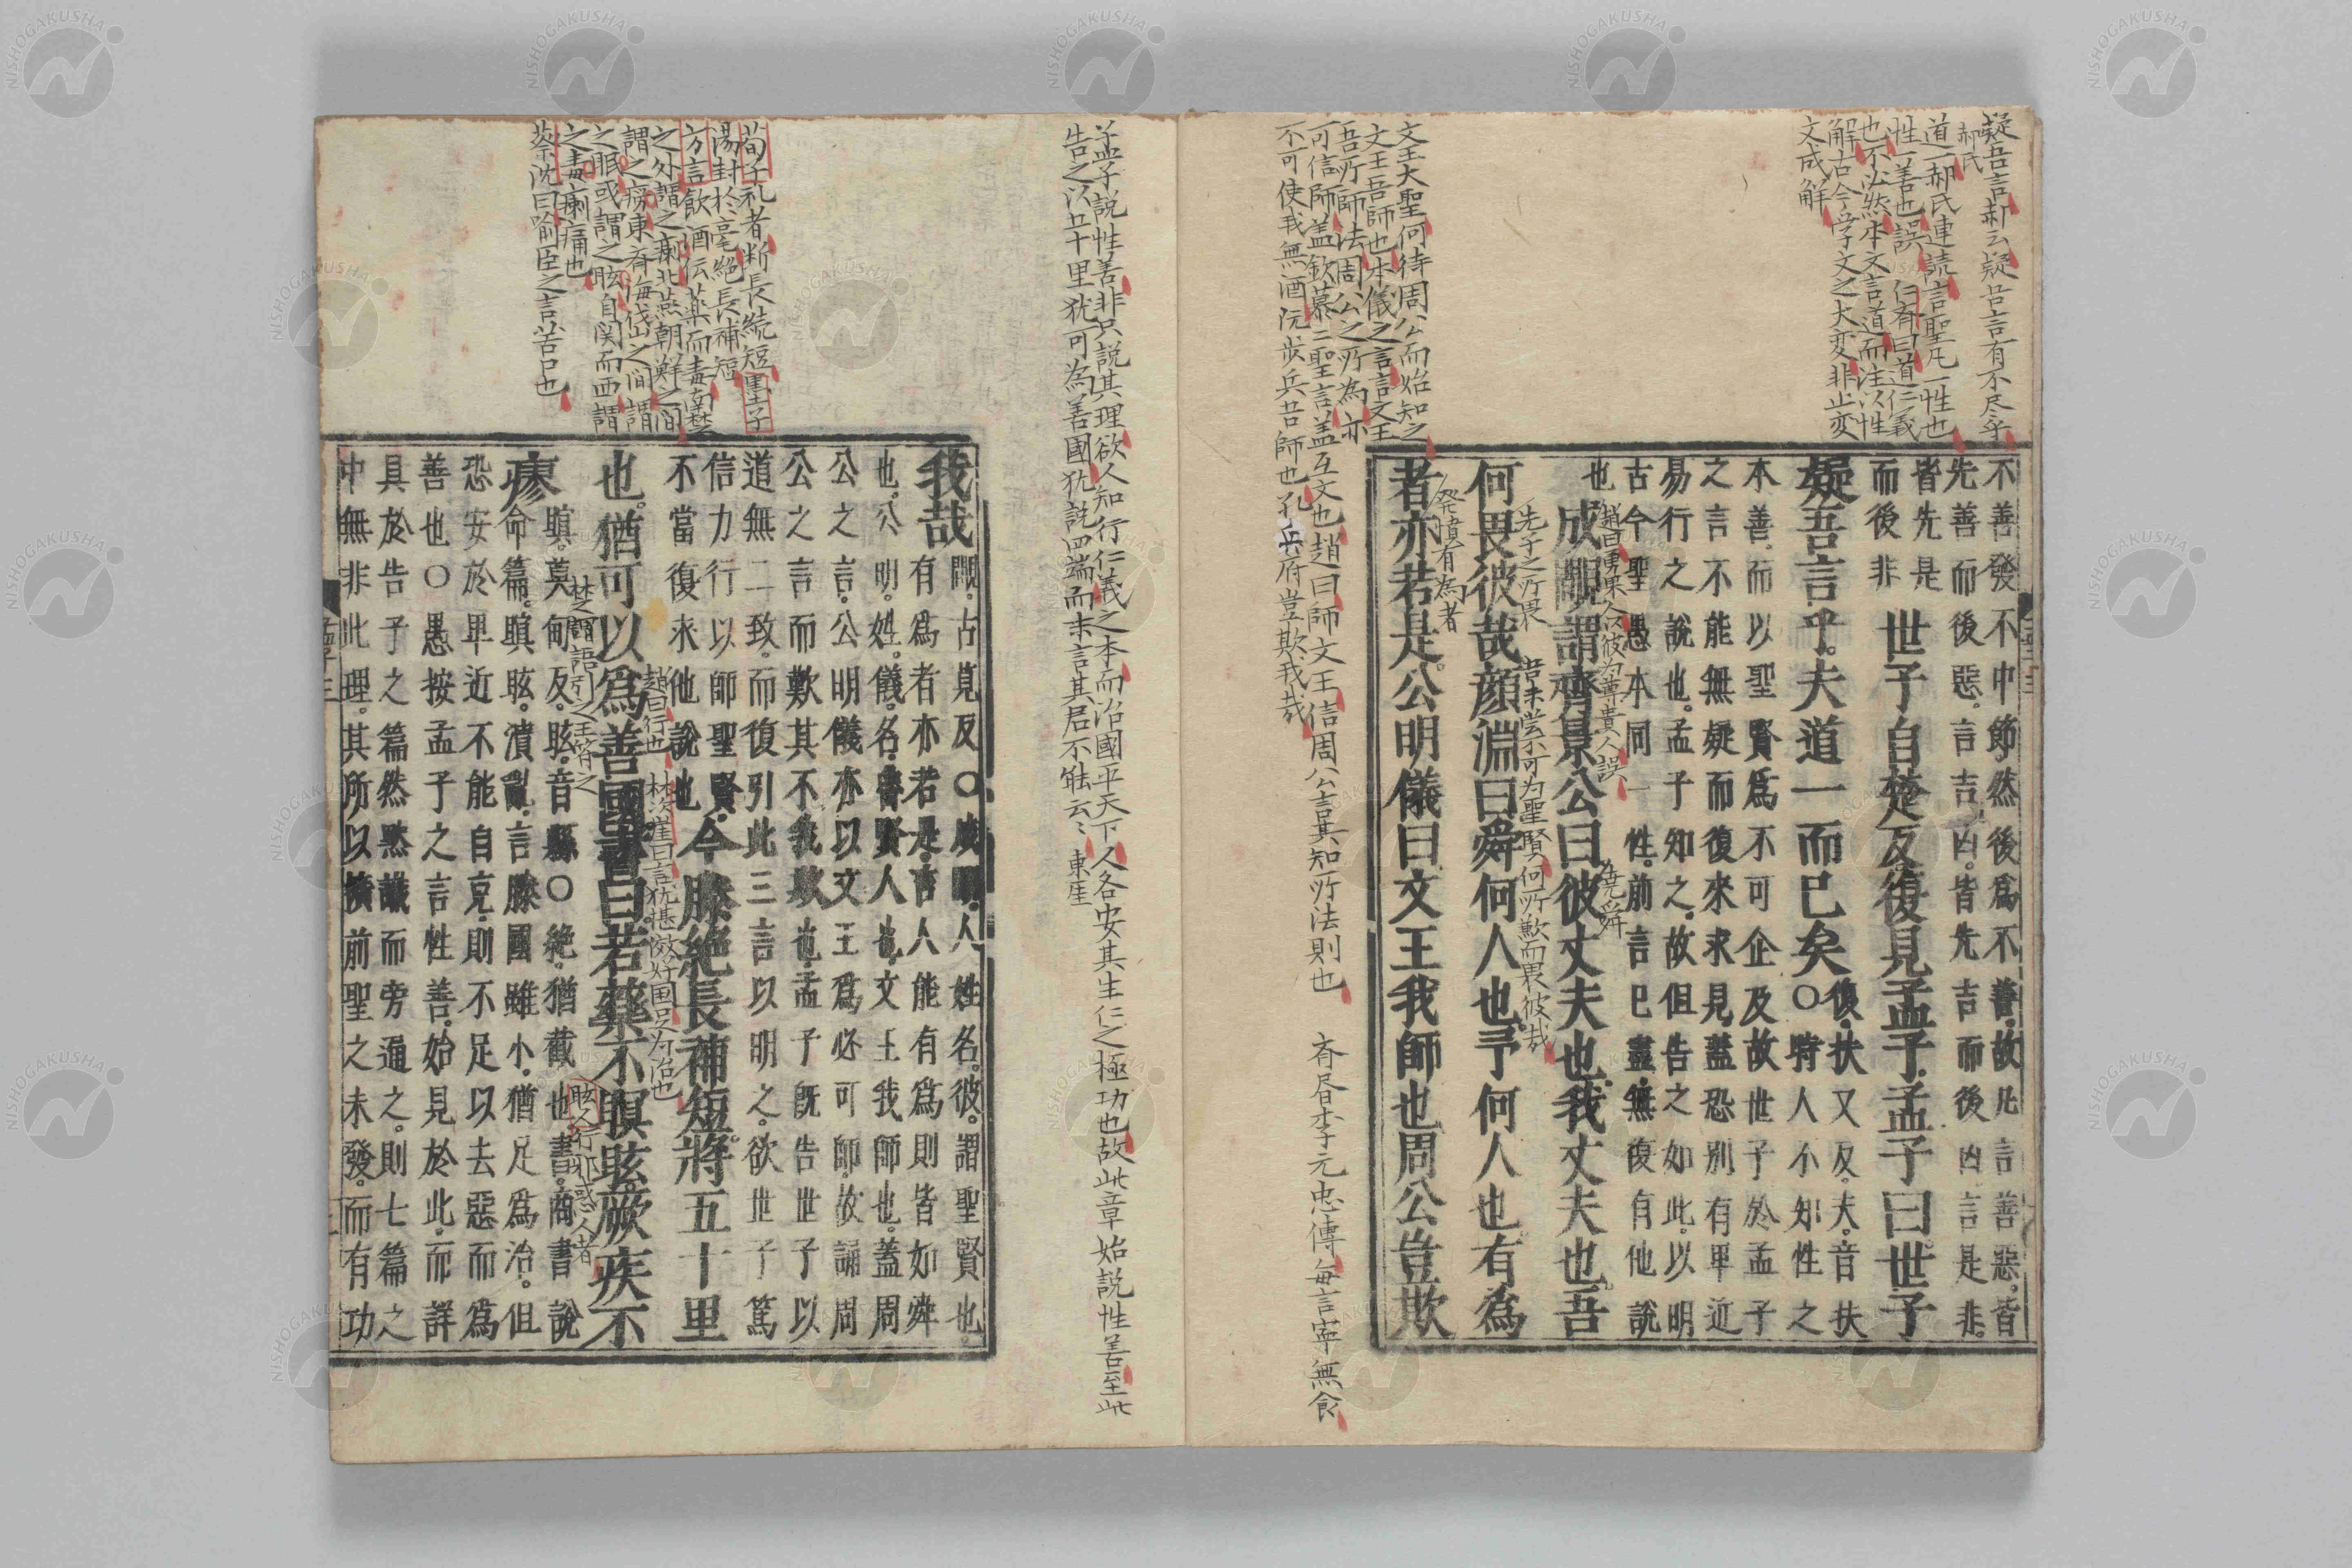 疑吾言郝云疑吾言有不尽乎
郝氏
道一郝氏連読言聖凡一性也
性一善也誤 仁斎曰道仁義
也不必然本文言道而注以性
解古今学文之大変非止変
文成解
不善發不中節然後爲不善故凡言善惡皆
先善而後惡言吉凶皆先吉而後凶言是非
皆先是
而後非
世子自楚反復見孟子孟子曰世子
疑吾言乎夫道一而已矣
復扶又反夫音扶
○時人不知性之
本善而以聖賢爲不可企及故世子於孟子
之言不能無疑而復來求見蓋恐別有卑近
易行之說也孟子知之故但告之如此以明
古今聖愚本同一性前言已盡無復有他說
也
趙曰勇果人以彼為尊貴人誤
為堯舜
成覸謂齊景公曰彼丈夫也我丈夫也吾
先子之所畏
吾未嘗不可为聖賢何所歉而畏彼哉
何畏彼哉顏淵曰舜何人也予何人也有爲
発憤有為者
者亦若是公明儀曰文王我師也周公豈欺
文王大聖何待周公而始知之
文王吾師也本儀之言言文王
吾所師法周公之所為亦
可信師蓋欽慕二聖言蓋互文也趙曰師文王信周公言其知所法則也
不可使我無酒阮步兵吾師也孔 府豈欺我哉
斉昏李元忠傳毎言寧無食
孟子説性善非只説其理欲人知行仁義之本而治國平天下人各安其生仁之極功也故此章始説性善至此
告之以五十里犹可為善國犹説四端而未言其居不能云〻 東厓
我哉
覸古莧反○成覸人姓名彼謂聖賢也
有爲者亦若是言人能有爲則皆如舜
也公明姓儀名魯賢人也文王我師也蓋周
公之言公明儀亦以文王爲必可師故誦周
公之言而歎其不我欺也孟子旣告世子以
道無二致而復引此三言以明之欲世子篤
信力行以師聖賢
不當復求他說也
今滕絶長補短將五十里
趙曰行也
林次崖曰言犹堪做好国只为治也
也猶可以爲善國書曰若藥不瞑眩厥疾不
楚語引之王皆謂之
眩人行邪惑人者
瘳
瞑莫甸反眩音縣○絶猶截也書商書說
命篇瞑眩潰亂言滕國雖小猶足爲治但
恐安於卑近不能自克則不足以去惡而爲
善也○愚按孟子之言性善始見於此而詳
具於告子之篇然黙識而旁通之則七篇之
中無非此理其所以擴前聖之未發而有功
孟子三
荀子礼者断長続短墨子
湯封於亳絶長補短
方言飲酒伝薬而毒南楚
之外謂之瘌北燕朝鮮之間
謂之癆東斉海岱之間謂
之眠或謂之眩自関而西謂
之毒瘌痛也
蔡沈曰喻臣之言苦口也